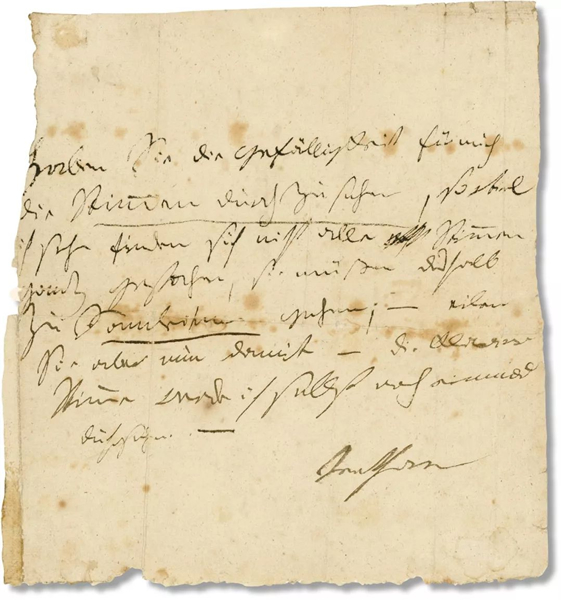 Haben Sie die Gefälligkeit für mich
die Stimmen durchzusehen, so viel
ich sehe finden sich nicht alle Stimmen
ganz gestochen, sie müßen deßhalb
zu Sonnleithner gehen; — eilen
Sie aber nun damit — die
Stimme werde ich selbst noch einmal
durchsehn. —
Beethoven